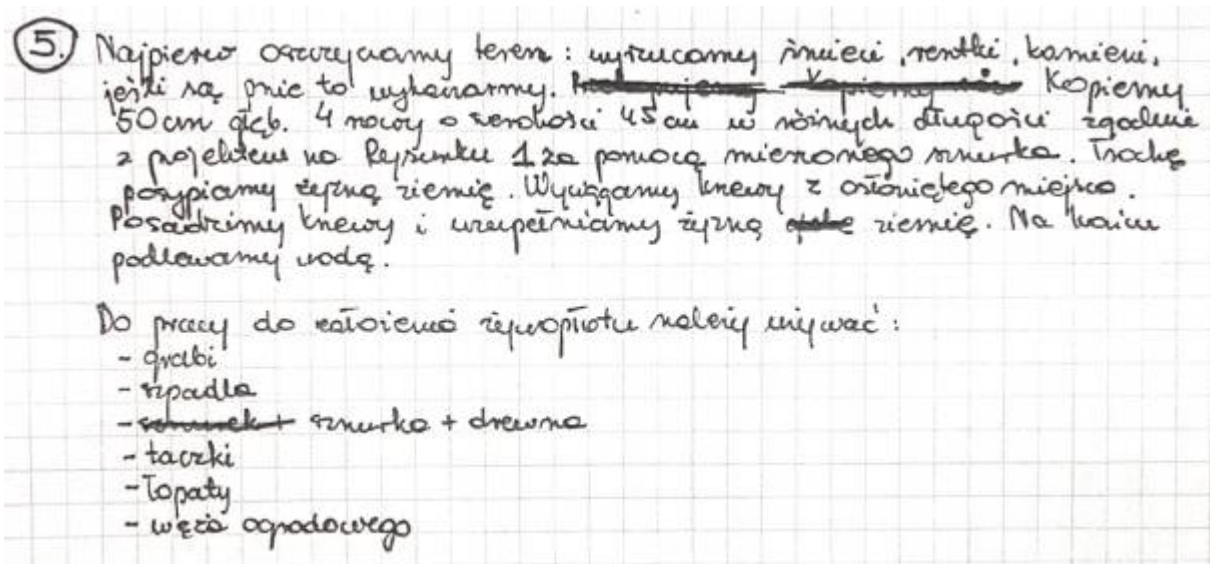 5. Najpierw oczyszczamy teren: wyrzucamy śmieci, resztki, kamieni,
jeśli są pnie to wykarczarmy. Kopiemy
50 cm głęb. 4 rowy o szerokości 45 cm w różnych długości zgodnie
z projektem na Rysunku 1 za pomocą mierzonego sznurka. Trochę
posypiamy żyzną ziemię. Wyciągamy krzewy z osłoniętego miejsca.
Posadzimy krzewy i uzupełniamy żyzną ziemię. Na końcu
podlewamy wodą.
Do pracy do założenia żywopłotu należy używać:
- grabi
- szpadla
- sznurka + drewna
- taczki
- łopaty
- węża ogrodowego